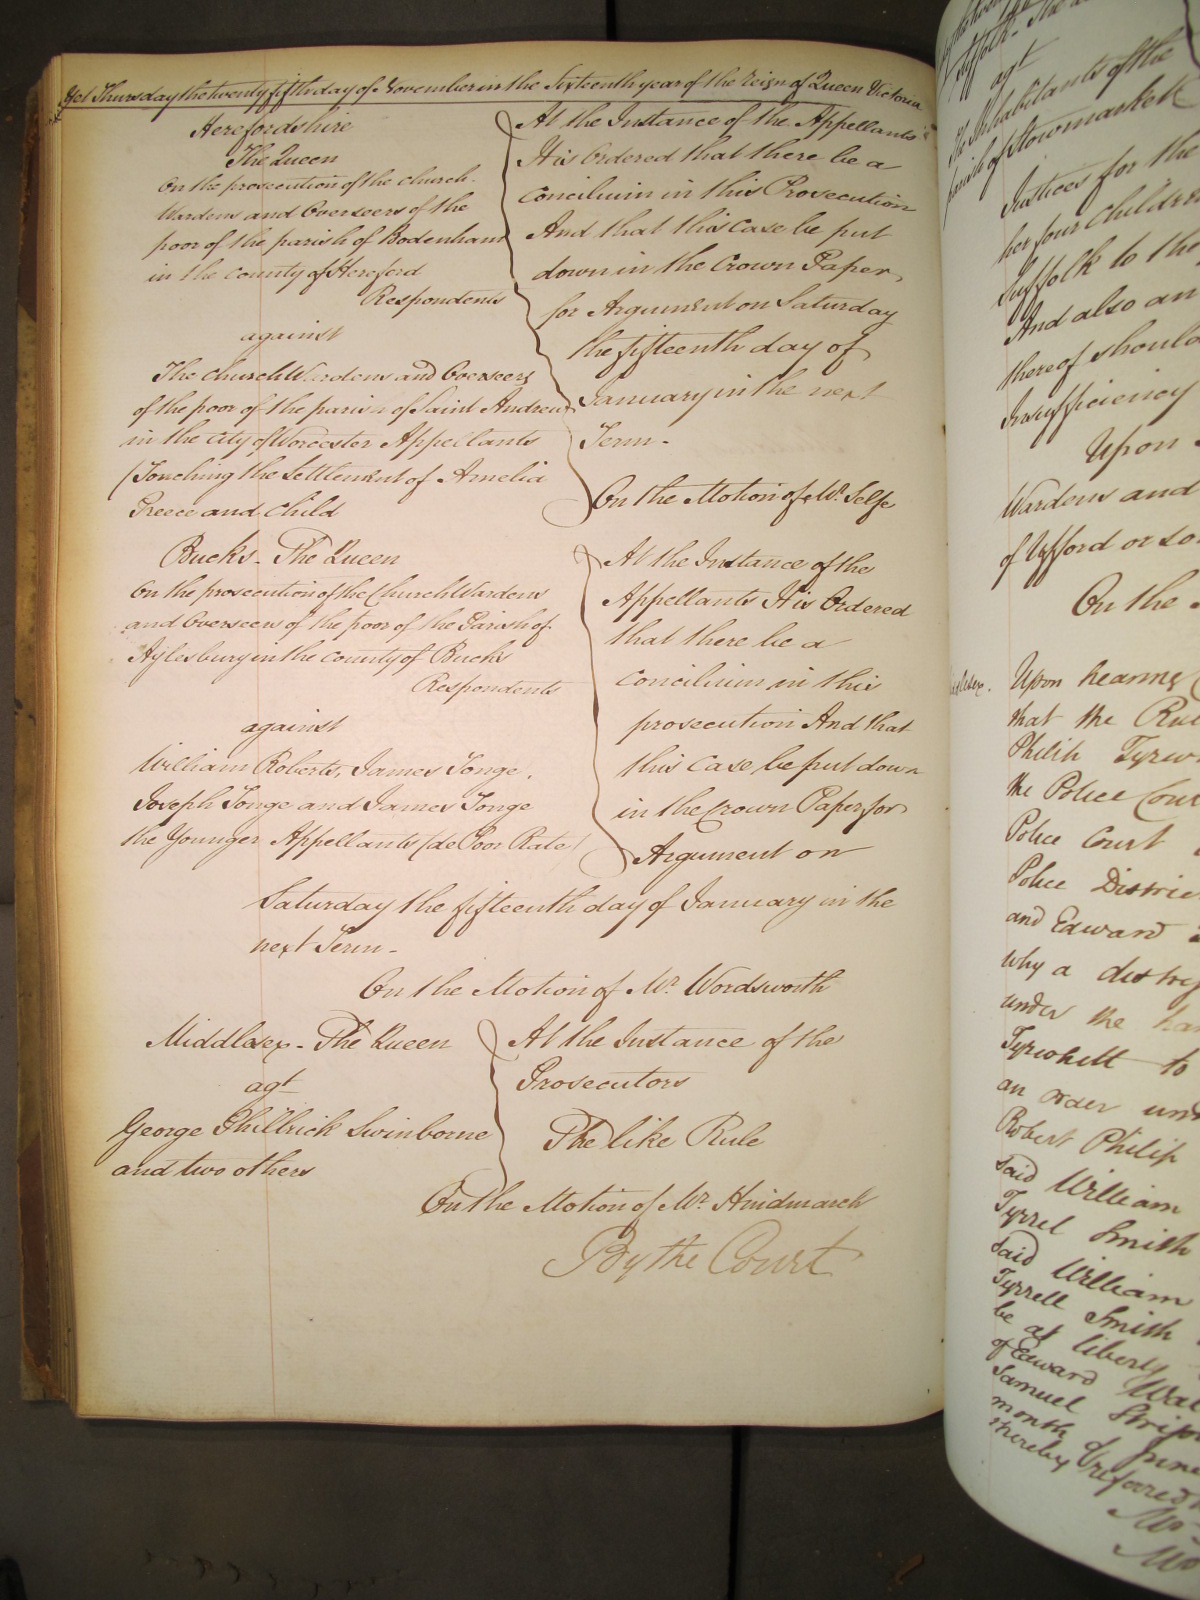 Yet Thursday the twenty fifth day of November in the Sixteenth year of the Reign of Queen Victoria
Herefordshire
The Queen
On the prosecution of the Church
Wardens and Overseers of the
poor of the parish of Bodenham
in the county of Hereford
Respondents
against
The Church Wardens and Overseers
of the poor of the parish of Saint Andrew
in the City of Worcester Appellants
(Touching the Settlement of Amelia
Greece and Child
At the Instance of the Appellants
It is Ordered that there be a
Concilium in this Prosecution
And that this Case be put
down in the Crown Paper
for Argument on Saturday
the fifteenth day of
January in the next
Term -
On the Motion of Mr. Selfe
Bucks - The Queen
On the prosecution of the Church Wardens
and Overseers of the poor of the Parish of
Aylesbury in the county of Bucks
Respondents
against
William Roberts, James Tonge,
Joseph Tonge and James Tonge
the Younger Appellants (de Poor Rate)
At the Instance of the
Appellants It is Ordered
that there be a
Concilium in this
prosecution And that
this Case be put down
in the Crown Paper for
Argument on
Saturday the fifteenth day of January in the
next Term -
On the Motion of Mr. Wordsworth
Middlesex - The Queen
agt
George Philbrick Swinborne
and two others
At the Instance of the
Prosecutors
The like Rule
On the Motion of Mr. Hindmarch
By the Court
Suffolk - The
agt
The Inhabitants of the
parish of Stowmarket
Justices for the
her four children
Suffolk to the
And also an
thereof should
Insufficiency
Upon
Wardens and
of Ufford or so
On the
Upon hearing
that the Rule
Philip Tyrw
the Police Cour
Police Court
Police Distric
and Edward
why a distre
under the han
Tyrwhitt to
an order und
Robert Philip
said William
Tyrrel Smith
said William
Tyrrell Smith
be at liberty
of Edward Wal
Samuel
month of June
thereby referred
Mr